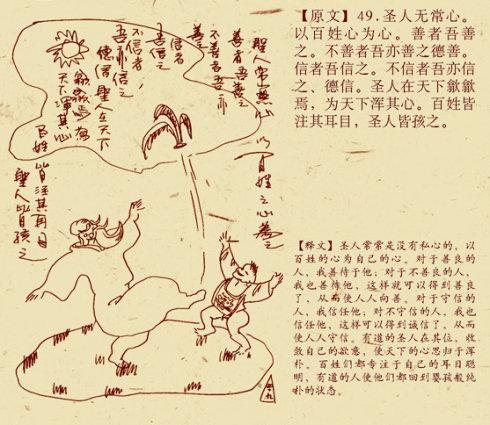 【原文】49.圣人无常心。
以百姓心为心。善者吾善
之。不善者吾亦善之德善。
信者吾信之。不信者吾亦信
之、德信。圣人在天下歙歙
焉，为天下浑其心。百姓皆
注其耳目，圣人皆孩之。
【释文】圣人常常是没有私心的，以
百姓的心为自己的心。对于善良的
人，我善待于他；对于不善良的人，
我也善待他，这样就可以得到善良
了，从而使人人向善。对于守信的
人，我信任他；对不守信的人，我也
信任他，这样可以得到诚信了，从而
使人人守信。有道的圣人在其位，收
敛自己的欲意，使天下的心思归于浑
朴。百姓们都专注于自己的耳目聪
明，有道的人使他们都回到婴孩般纯
朴的状态。
聖人常無心
以百姓之心為心
善者吾善之
不善者吾亦
善之
信者
吾信之
不信者
吾亦信之
德信聖人在天下
歙歙焉為
天下渾其心
百姓皆注其耳目
聖人皆孩之